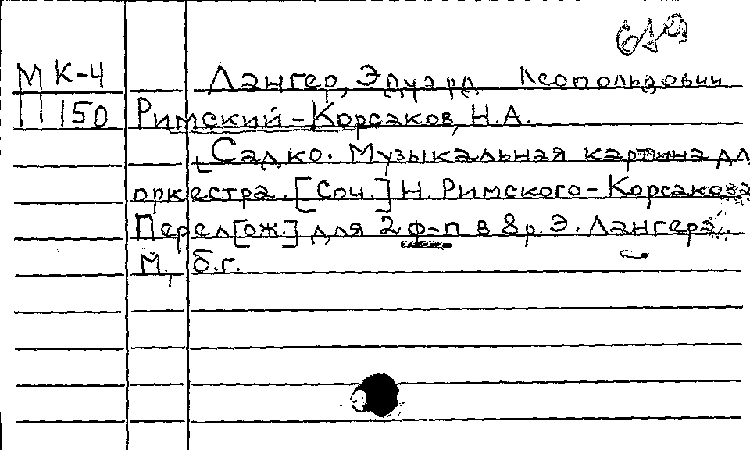 619
МК-4 Лангер, Эдуард Леопольдович
П 150 Римский-Корсаков, Н.А.
Садко. Музыкальная картина дл
оркестра. [Соч.] Н. Римского-Корсакова
Перел[ож.] для 2 ф-п в 8 р. Э. Лангера.
М., б.г.